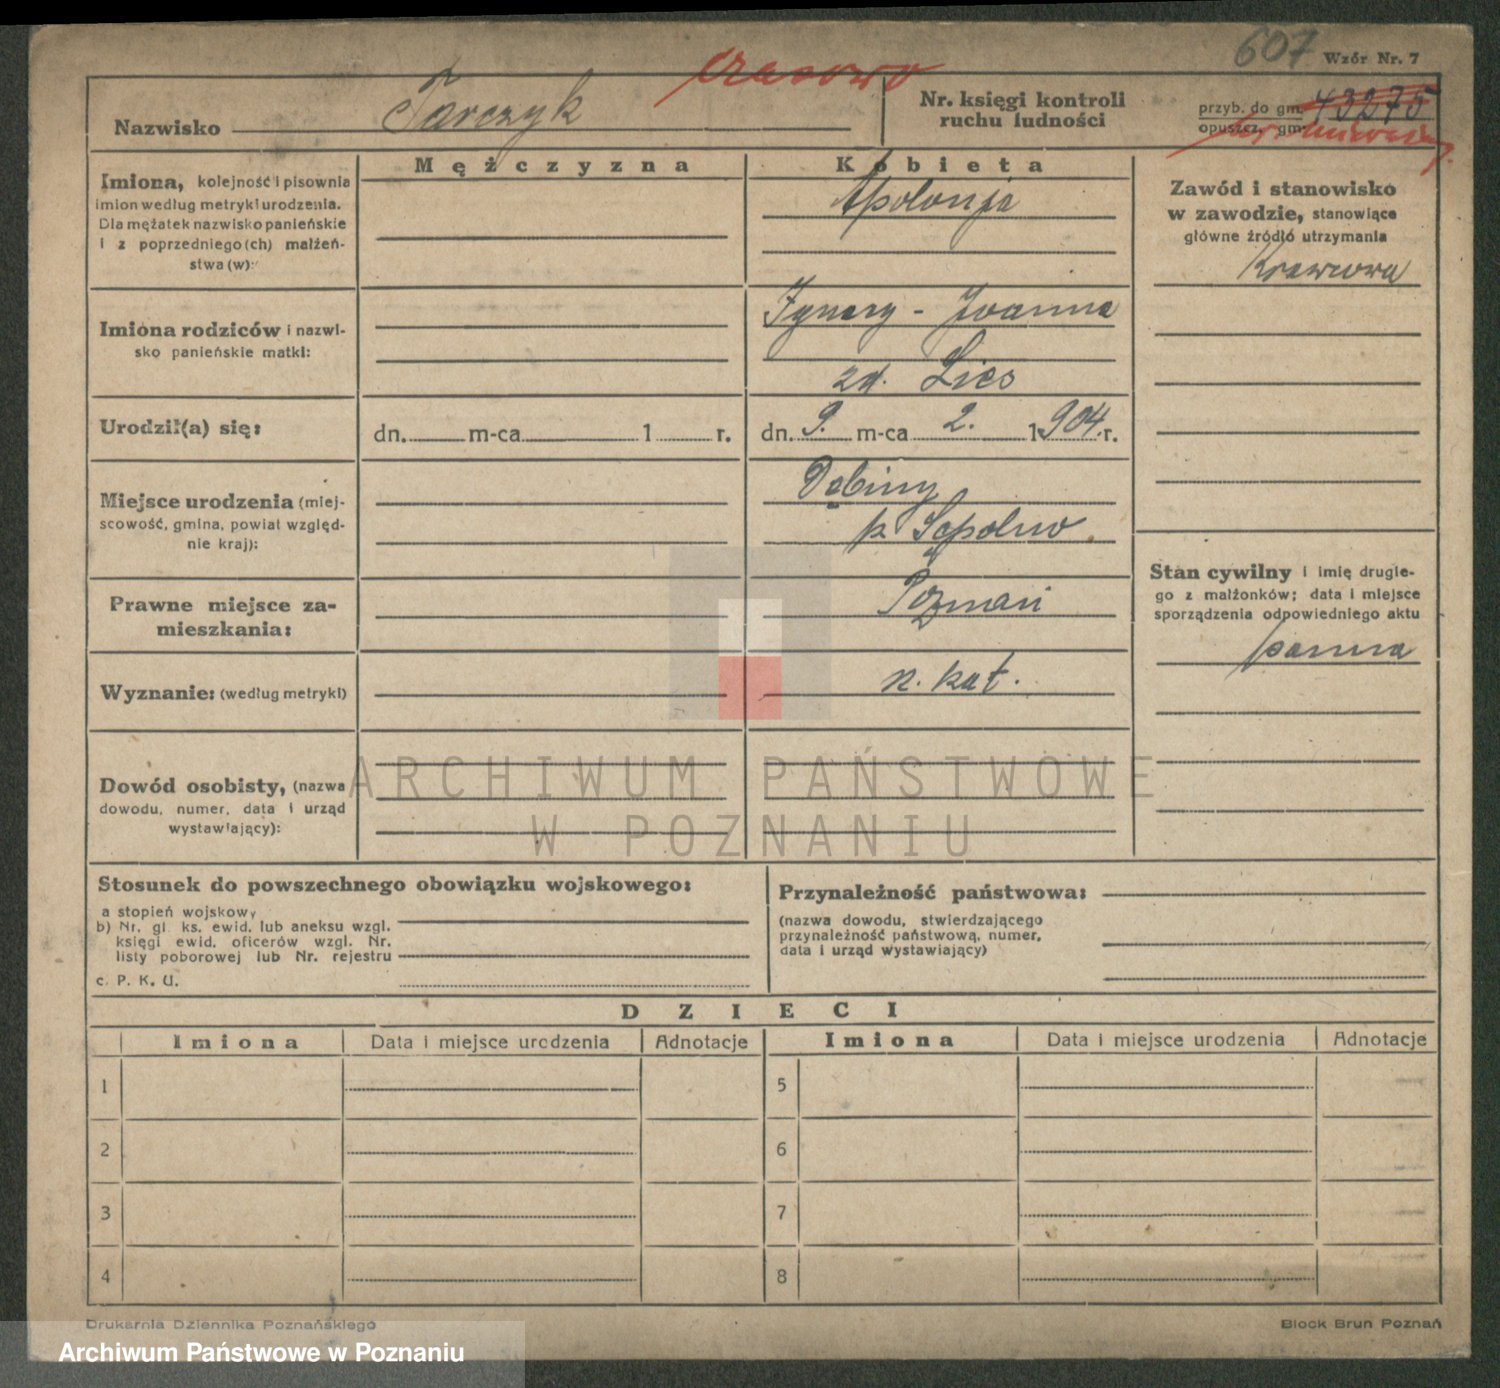 607 Wzór Nr. 7
czasowo
Nazwisko Tarczyk
Nr. księgi kontroli
ruchu ludności
przyb. do gm. 43275
opuszcz. gm.
Mężczyzna Kobieta
Imiona, kolejność i pisownia
imion według metryki urodzenia.
Dla mężatek nazwisko panieńskie
i z poprzedniego(ch) małżeń-
stwa(w):
Apolonja
Zawód i stanowisko
w zawodzie, stanowiące
główne źródło utrzymania
Krawcowa
Imiona rodziców i nazwi-
sko panieńskie matki:
Ignacy - Joanna
zd. Lies
Urodził(a) się:
dn. m-ca 1 r. dn. 9. m-ca 2. 1904 r.
Miejsce urodzenia (miej-
scowość, gmina, powiat względ-
nie kraj):
Dębiny
p. Sępolno
Prawne miejsce za-
mieszkania:
Poznań
Stan cywilny i imię drugie-
go z małżonków; data i miejsce
sporządzenia odpowiedniego aktu
panna
Wyznanie: (według metryki)
rz. kat.
Dowód osobisty, (nazwa
dowodu, numer, data i urząd
wystawiający):
ARCHIWUM PAŃSTWOWE
W POZNANIU
Stosunek do powszechnego obowiązku wojskowego:
a stopień wojskowy
b) Nr. gl. ks. ewid. lub aneksu wzgl.
księgi ewid. oficerów wzgl. Nr.
listy poborowej lub Nr. rejestru
c. P. K. U.
Przynależność państwowa:
(nazwa dowodu, stwierdzającego
przynależność państwową, numer,
data i urząd wystawiający)
DZIECI
Imiona Data i miejsce urodzenia Adnotacje Imiona Data i miejsce urodzenia Adnotacje
1 5
2 6
3 7
4 8
Drukarnia Dziennika Poznańskiego Block Brun Poznań
Archiwum Państwowe w Poznaniu